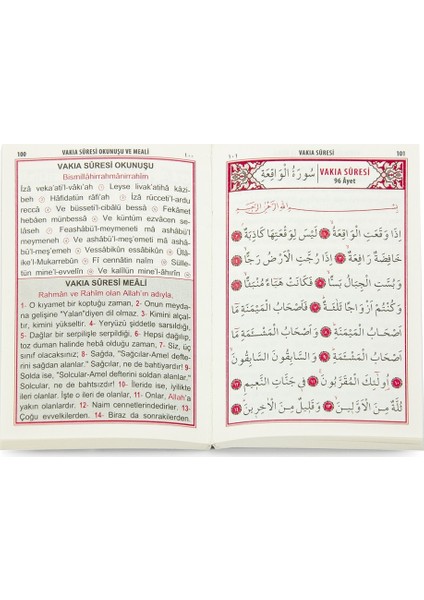 100 VAKIA SÛRESİ OKUNUŞU VE MEALİ
VAKIA SÛRESİ OKUNUŞU
Bismillâhirrahmânirrahîm
İzâ veka'ati'l-vâkı'ah Leyse livak'atihâ kâzi-
beh Hâfidatün râfi'ah İzâ rucceti'l-ardu
reccâ Ve büsseti'l-cibâlü bessâ Fekânet
hebâen münbessâ Ve küntüm ezvâcen se-
lâseh Feashâbü'l-meymeneti mâ ashâ-
bü'l-meymeneh Ve ashâbü'l-meş'emeti mâ ashâ-
bü'l-meş'emeh Vessâbikûn essâbikûn
Ülâike'l-Mukarrebûn Fî cennâtin naîm Sülle-
tün mine'l-evvelîn Ve kalîlün mine'l-âhırîn
VAKIA SÛRESİ MEÂLİ
Rahmân ve Rahîm olan Allah'ın adıyla,
1- O kıyamet bir koptuğu zaman, 2- Onun meyda-
na gelişine "Yalan"diyen dil olmaz. 3- Kimini alçal-
tır, kimini yükseltir. 4- Yeryüzü şiddetle sarsıldığı,
5- Dağlar bir serpilişle serpildiği, 6- Hepsi dağılıp,
toz duman halinde hebâ olduğu zaman, 7- Siz, üç
sınıf olacaksınız: 8- Sağda, "Sağcılar-Amel defte-
rini sağdan alanlar." Sağcılar, ne de bahtiyardır! 9-
Solda ise, "Solcular-Amel defterini soldan alanlar."
Solcular, ne de bahtsızdır! 10- İleride ise, iyilikte
ileri olanlar. İşte o ileri de olanlar, 11- Onlar, Allah'a
yakın olanlardır. 12- Naim cennetlerindedirler. 13-
Çoğu evvelkilerden. 14- Biraz da sonrakilerden.
VAKIA SÛRESİ 101
سُورَةُ الْوَاقِعَةِ
VAKIA SÛRESİ
96 Âyet
بِسْمِ اللّٰهِ الرَّحْمٰنِ الرَّحِيمِ
اِذَا وَقَعَتِ الْوَاقِعَةُ ۙ لَيْسَ لِوَقْعَتِهَا كَاذِبَةٌ
خَافِضَةٌ رَافِعَةٌ ۙ اِذَا رُجَّتِ الْاَرْضُ رَجًّا
وَبُسَّتِ الْجِبَالُ بَسًّا ۙ فَكَانَتْ هَبَٓاءً مُنْبَثًّا
وَكُنْتُمْ اَزْوَاجًا ثَلٰثَةً فَاَصْحَابُ الْمَيْمَنَةِ مَٓا
اَصْحَابُ الْمَيْمَنَةِ وَاَصْحَابُ الْمَشْـَٔمَةِ مَٓا
اَصْحَابُ الْمَشْـَٔمَةِ وَالسَّابِقُونَ السَّابِقُونَ
اُو۬لٰٓئِكَ الْمُقَرَّبُونَ فِي جَنَّاتِ النَّعِيمِ
ثُلَّةٌ مِنَ الْاَوَّلِينَ ۙ وَقَلِيلٌ مِنَ الْاٰخِرِينَ